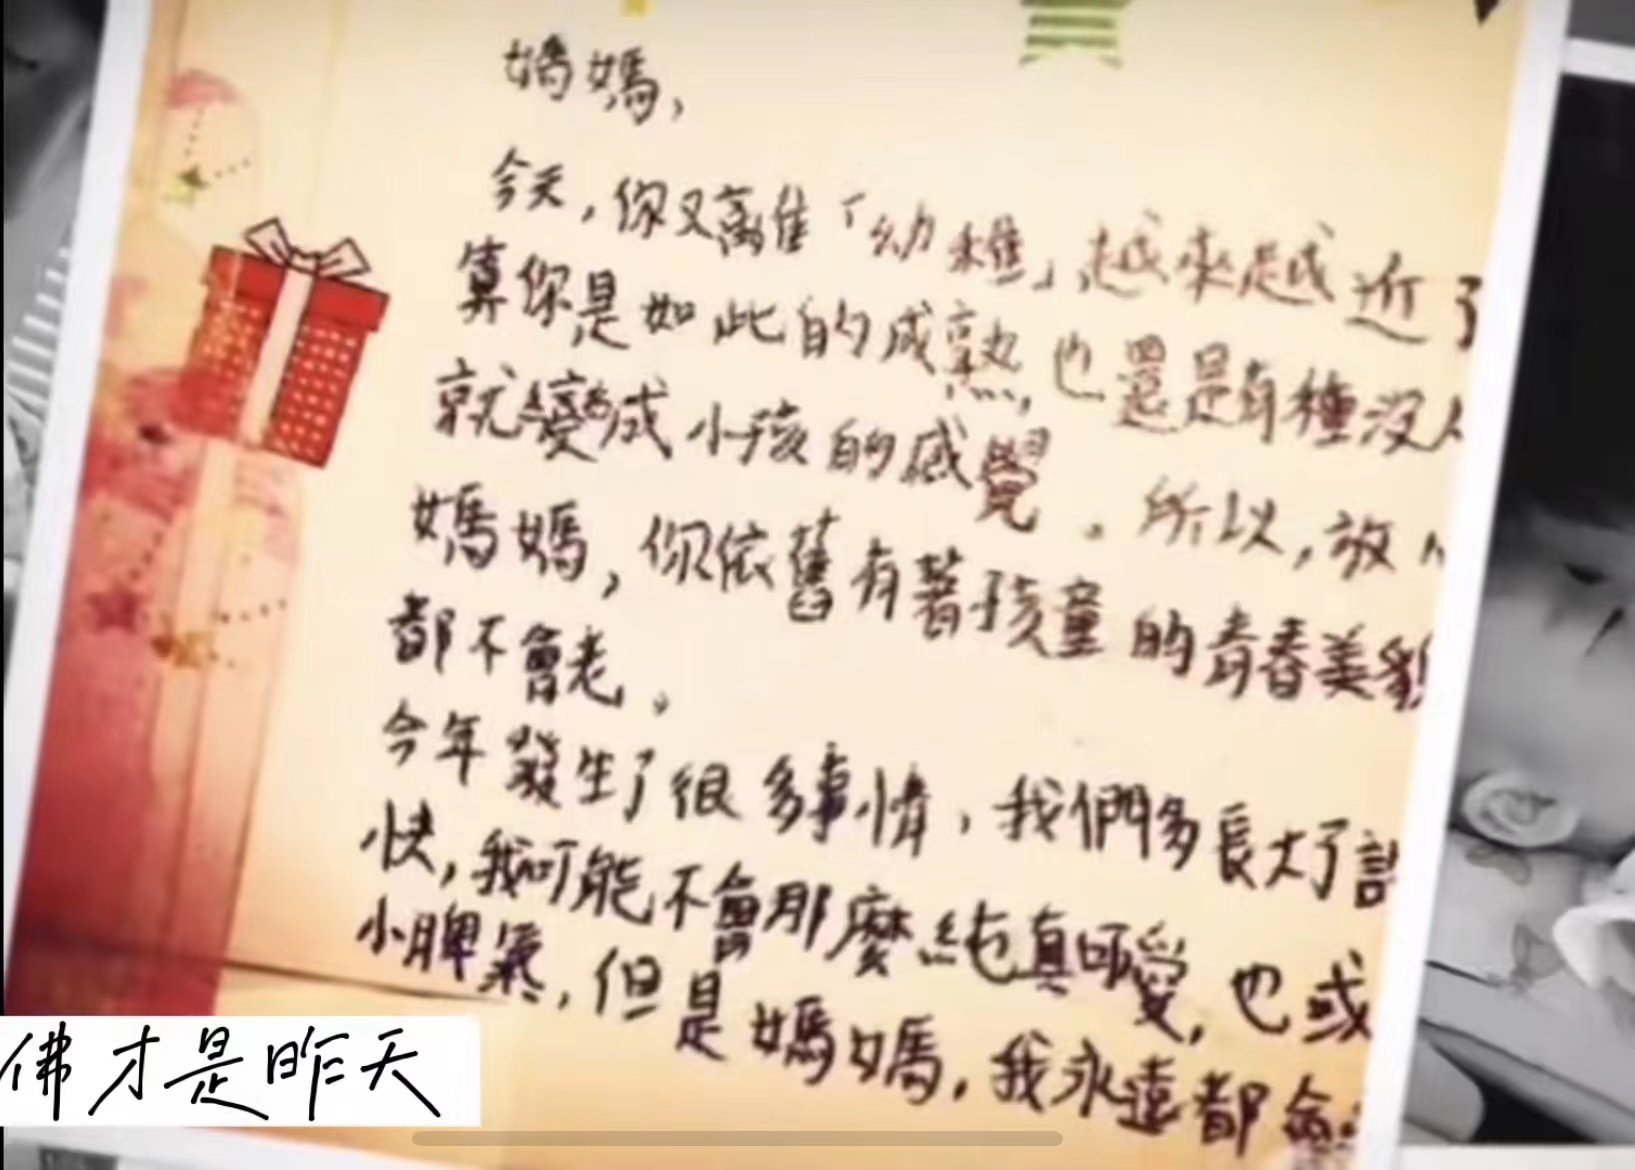 媽媽，
今天，你又離「幼稚」越來越近了
算你是如此的成熟，也還是有種沒人
就變成小孩的感覺。所以，放心
媽媽，你依舊有著孩童的青春美貌
都不會老。
今年發生了很多事情，我們多長大了許
快，我可能不會那麼純真可愛，也或
小脾氣，但是媽媽，我永遠都會
佛才是昨天